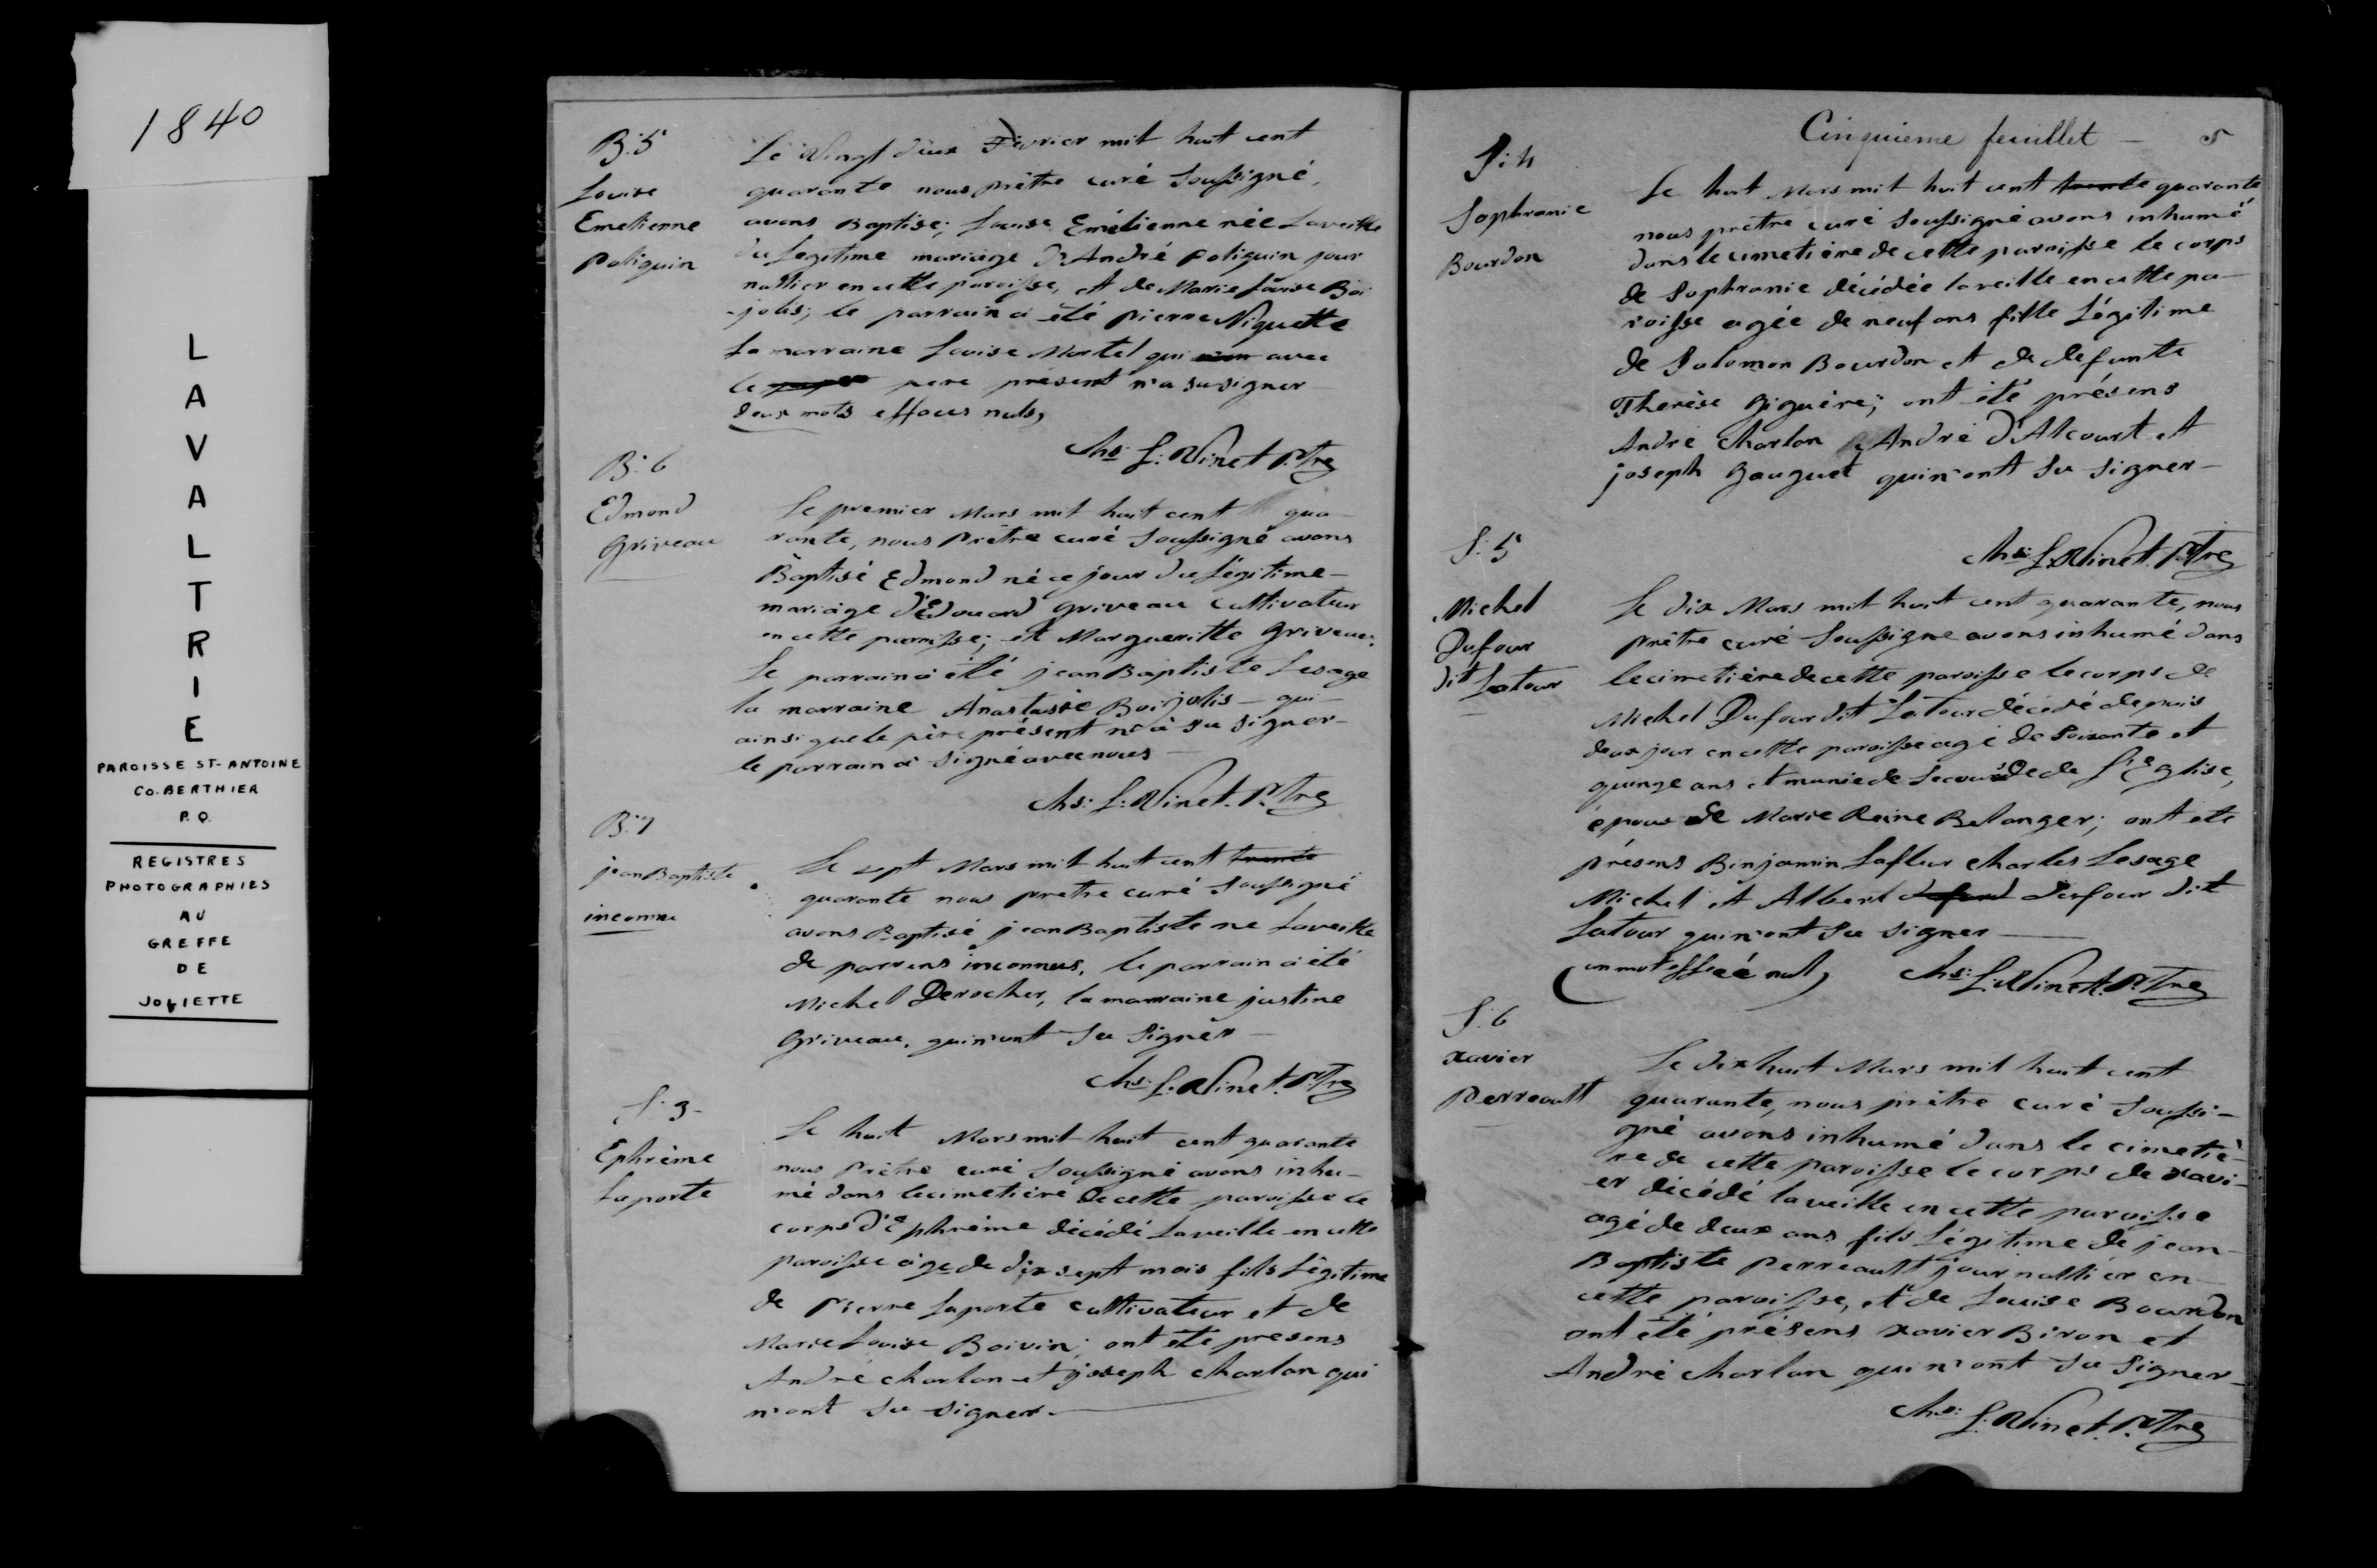 1840
L
A
V
A
L
T
R
I
E
PAROISSE ST-ANTOINE
CO. BERTHIER
P.Q.
REGISTRES
PHOTOGRAPHIES
AU
GREFFE
DE
JOLIETTE
B:5
Louise
Emelienne
Poliquin
Le vingt deux Fevrier mil huit cent
quarante nous prêtre curé Soussigné,
avons Baptisé; Louise Emélienne née Laveille
du Légitime mariage d'André Poliquin jour
nallier en cette paroisse, et de Marie Louise Boi
-jolis; le parrain a été pierre Niquette
La marraine Louise Martel qui avec
le pere présent n'a su signer
deux mots effacés nuls,
Chs: L: Vinet Ptre
B:6
Edmond
Griveau
Le premier Mars mil huit cent qua-
rante, nous Prêtre curé Soussigné avons
Baptisé Edmond né ce jour du Légitime-
mariage d'Edouard Griveau Cultivateur
en cette paroisse; et Margueritte Griveau.
Le parrain a été jean Baptiste Lesage
la marraine Anastasie Boisjolis - qui -
ainsi que le père présent n'a su signer -
le parrain a signé avec nous -
Chs: L: Vinet. Ptre
B:7
jean Baptiste
inconnu
Le sept Mars mil huit cent trente
quarante nous pretre curé Soussigné
avons Baptisé jean Baptiste ne Laveille
de parrens inconnus, le parrain a été
Michel Derocher, la marraine justine
Griveau, qui n'ont Su Signer -
Chs: L: Vinet. Ptre
S. 3-
Ephrème
Laporte
Le huit Mars mil huit cent quarante
nous Prêtre curé Soussigné avons inhu-
mé dans le cimetière de cette paroisse le
corps d'Ephrème décédé Laveille en cette
paroisse age de dix sept mois fils Légitime
de Pierre Laporte cultivateur et de
Marie Louise Boivin; ont été presens
André charlan et joseph charlan qui
n'ont su signer -
Cinquieme feuillet - 5
S: 4
Sophronie
Bourdon
Le huit Mars mil huit cent trente quarante
nous prêtre curé Soussigné avons inhumé
dans le cimetière de cette paroisse le corps
de Sophronie décédée la veille en cette pa-
roisse agée de neuf ans fille Légitime
de Solomon Bourdon et de defunte
Therèse Giguère; ont été présens
André Charlan André D'Alcourt et
joseph Gauguet qui n'ont Su Signer -
Chs: L. Vinet. Ptre
S: 5
Michel
Dufour
dit Latour
Le dix Mars mil huit cent quarante, nous
Prêtre curé Soussigne avons inhumé dans
le cimetière de cette paroisse le corps de
Michel Dufour dit LaTour décédé depuis
deux jour en cette paroisse agé de Soixante et
quinze ans et munie de Secours de Ste Eglise,
époux de Marie Reine Belanger; ont ete
présens Binjamin Lafleur charles Lesage
Michel et Albert Dufour dit
Latour qui n'ont Su signer -
(un mot effacé nul) Chs: L. Vinet. Ptre
S: 6
xavier
Perreault
Le dix huit Mars mil huit cent
quarante, nous prêtre curé Soussi-
gné avons inhumé dans le cimetiè-
re de cette paroisse le corps de xavi-
er décédé la veille en cette paroisse
agé de deux ans fils Légitime de jean-
Baptiste Perreault journallier en -
cette paroisse, et de Louise Bourdon
ont été présens xavier Biron et
André charlan qui n'ont Su Signer -
Chs: L: Vinet. Ptre